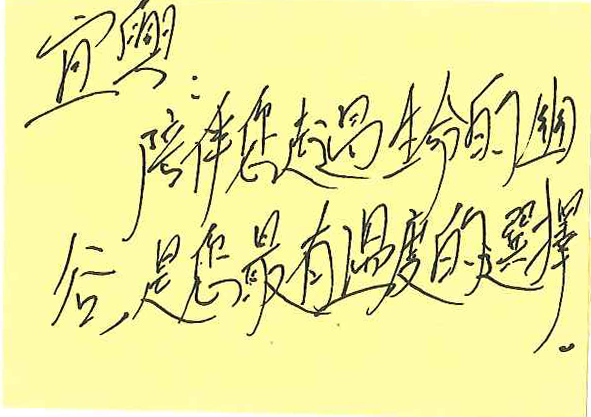 宜興:
陪伴您走過生命的幽
谷,是您最有溫度的選擇.